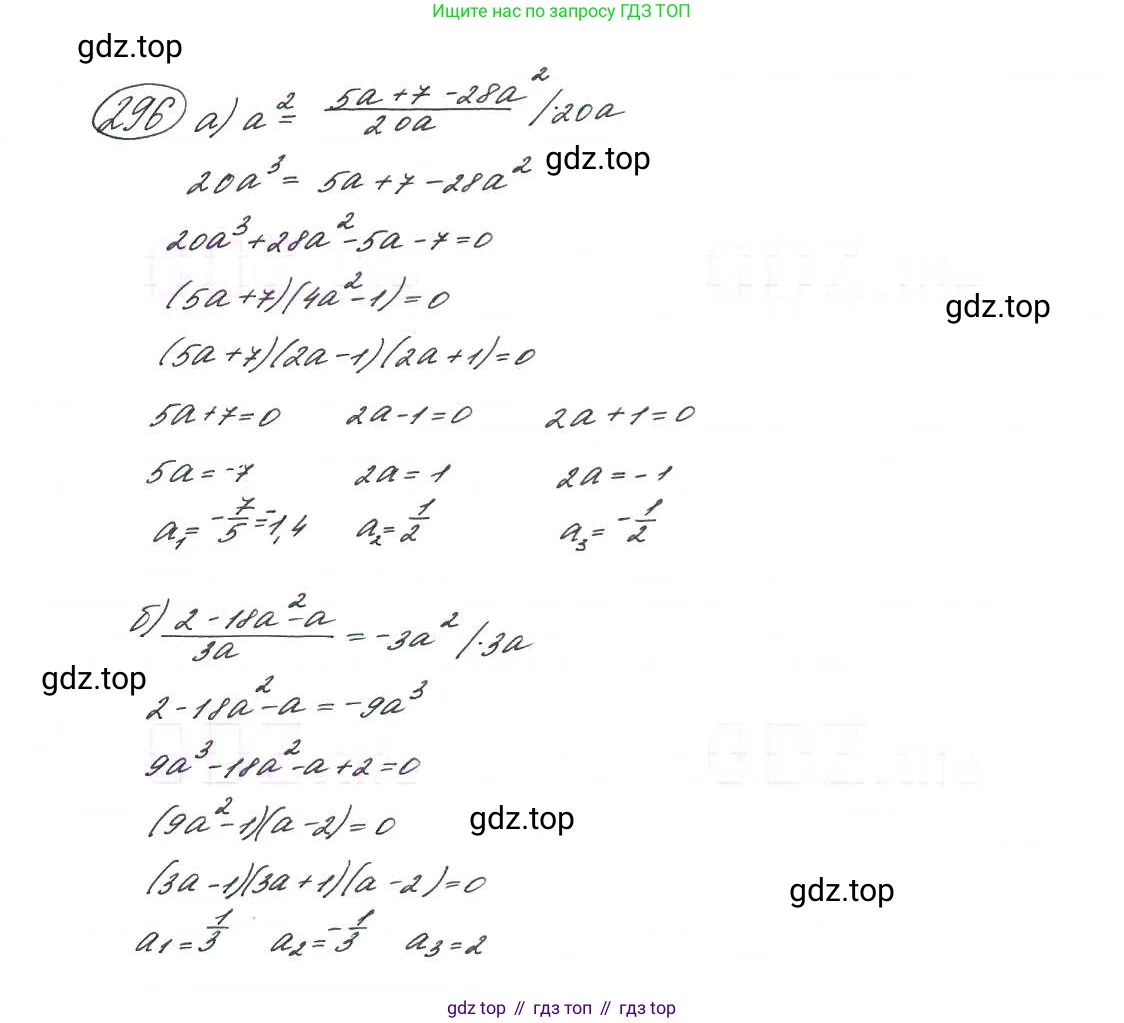 Ищите нас по запросу ГДЗ ТОП
gdz.top
296 а) a² = (5a+7-28a²)/(20a) /·20a
gdz.top
20a³ = 5a+7-28a²
20a³+28a²-5a-7=0
(5a+7)(4a²-1)=0
gdz.top
(5a+7)(2a-1)(2a+1)=0
5a+7=0 2a-1=0 2a+1=0
5a=-7 2a=1 2a=-1
a₁=-7/5=-1,4 a₂=1/2 a₃=-1/2
б) (2-18a²-a)/(3a) = -3a² /·3a
gdz.top
2-18a²-a=-9a³
9a³-18a²-a+2=0
(9a²-1)(a-2)=0
gdz.top
(3a-1)(3a+1)(a-2)=0
gdz.top
a1=1/3 a2=-1/3 a3=2
gdz top // гдз топ // gdz top